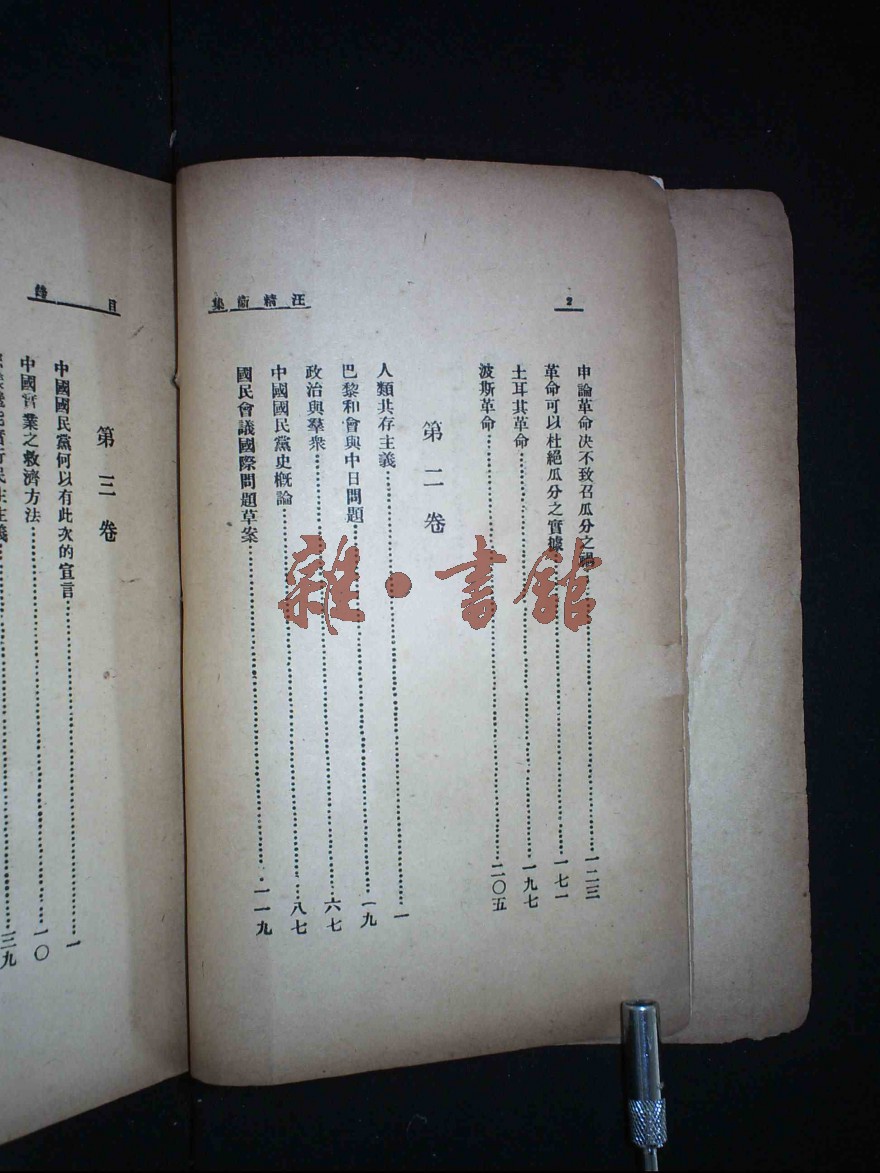 2
汪精衞集
申論革命決不致召瓜分之禍……一二三
革命可以杜絕瓜分之實據……一七一
土耳其革命……一九七
波斯革命……二〇五
第二卷
人類共存主義……一
巴黎和會與中日問題……一九
政治與羣衆……六七
中國國民黨史概論……八七
國民會議國際問題草案……一一九
目錄
第三卷
中國國民黨何以有此次的宣言……一
中國實業之救濟方法……一〇
實行民生主義……三九
雜·書館